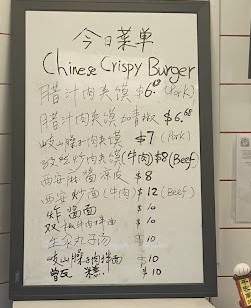 今日菜单
Chinese Crispy Burger
腊汁肉夹馍 $6.⁶⁸ (Pork)
腊汁肉夹馍加青椒 $6.⁶⁸
岐山臊子肉夹馍 $7 (Pork)
孜然炒肉夹馍(牛肉) $8 (Beef)
西安麻酱凉皮 $8
西安炒面(牛肉) $12 (Beef)
炸酱面 $10
双椒牛肉拌面 $10
生汆丸子汤 $10
岐山臊子肉拌面 $10
$10